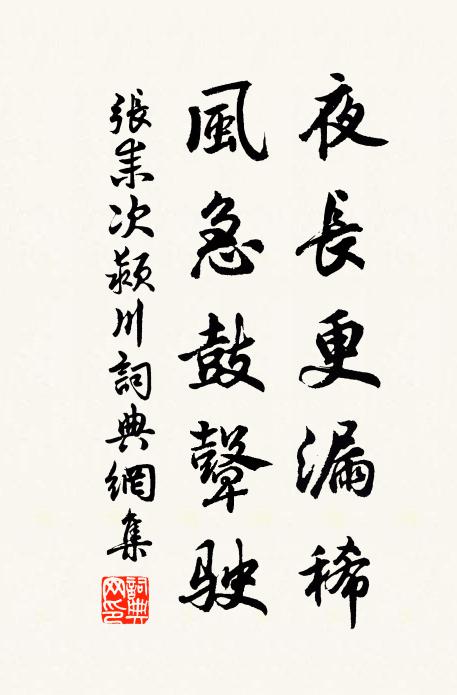 夜長更漏稀
風急鼓鼙駛
張耒次潁川詞典網集
詞典网印